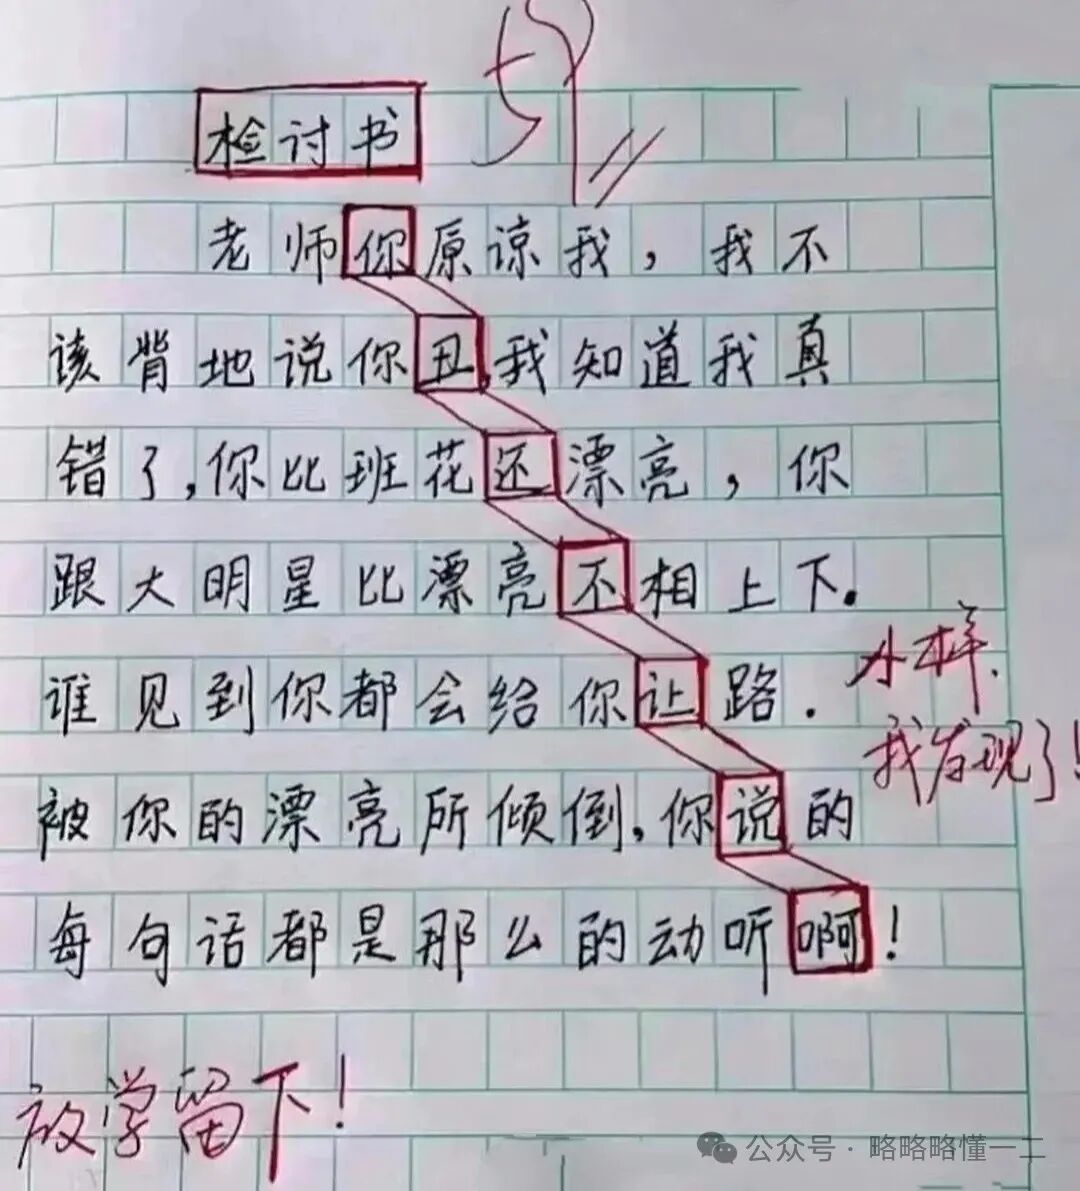 检讨书
老师你原谅我，我不
该背地说你丑，我知道我真
错了，你比班花还漂亮，你
跟大明星比漂亮不相上下.
谁见到你都会给你让路.
小样.
我发现了！
被你的漂亮所倾倒，你说的
每句话都是那么的动听啊！
放学留下！
公众号·略略略懂一二